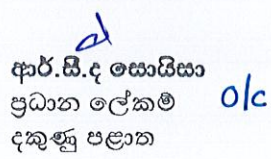 ආර්.සී.ද සොයිසා
ප්‍රධාන ලේකම් o/c
දකුණු පළාත